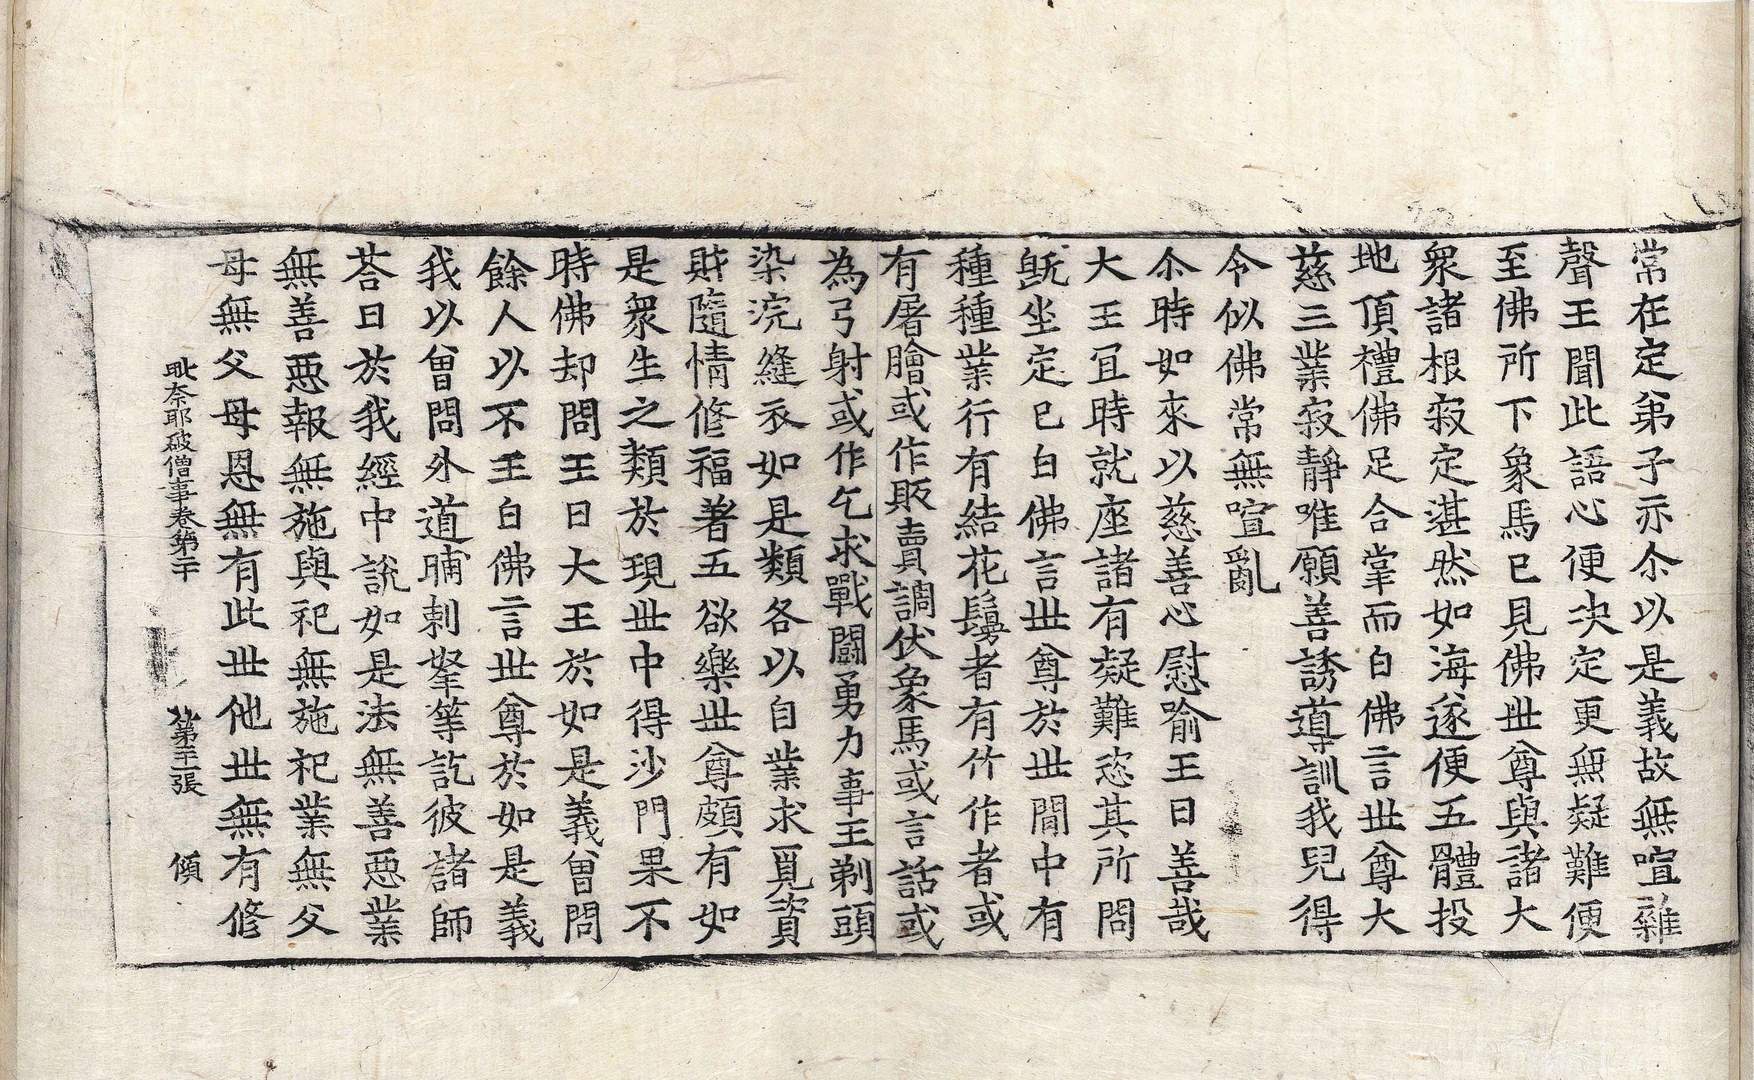 常在定弟子示尒以是義故無喧雜
聲王聞此語心便決定更無疑難便
至佛所下象馬已見佛世尊與諸大
衆諸根寂定湛然如海遂便五體投
地頂禮佛足合掌而白佛言世尊大
慈三業寂靜唯願善誘導訓我兒得
令似佛常無喧亂
尒時如來以慈善心慰喻王曰善哉
大王冝時就座諸有疑難恣其所問
旣坐定已白佛言世尊於世間中有
種種業行有結花鬘者有竹作者或
有屠膾或作販賣調伏象馬或言話或
為弓射或作乞求戰鬪勇力事王剃頭
染浣縫衣如是類各以自業求覓資
財隨情修福著五欲樂世尊頗有如
是衆生之類於現世中得沙門果不
時佛却問王曰大王於如是義曾問
餘人以不王白佛言世尊於如是義
我以曾問外道晡剌拏等訖彼諸師
荅曰於我經中說如是法無善惡業
無善惡報無施與祀無施祀業無父
母無父母恩無有此世他世無有修
毗奈耶破僧事卷第二十 第二十二張 傾